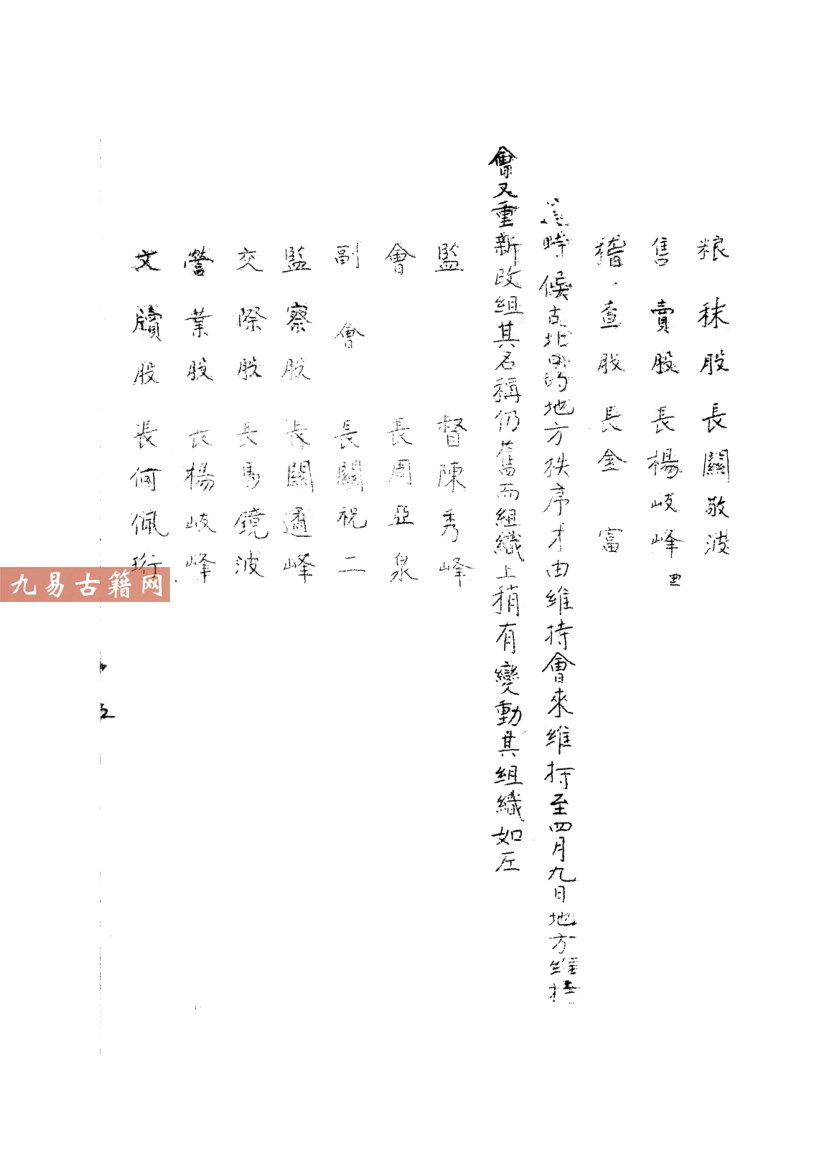 粮秣股長關敬波
售賣股長楊岐峰
稽查股長金富
這時候古北口的地方秩序才由維持會來維持至四月九日地方維持
會又重新改組其名稱仍舊而組織上稍有變動其組織如左
監督陳秀峰
會長周亞泉
副會長關祝二
監察股長關通峰
交際股長馬鏡波
營業股長楊岐峰
文牘股長何佩珩
九易古籍网